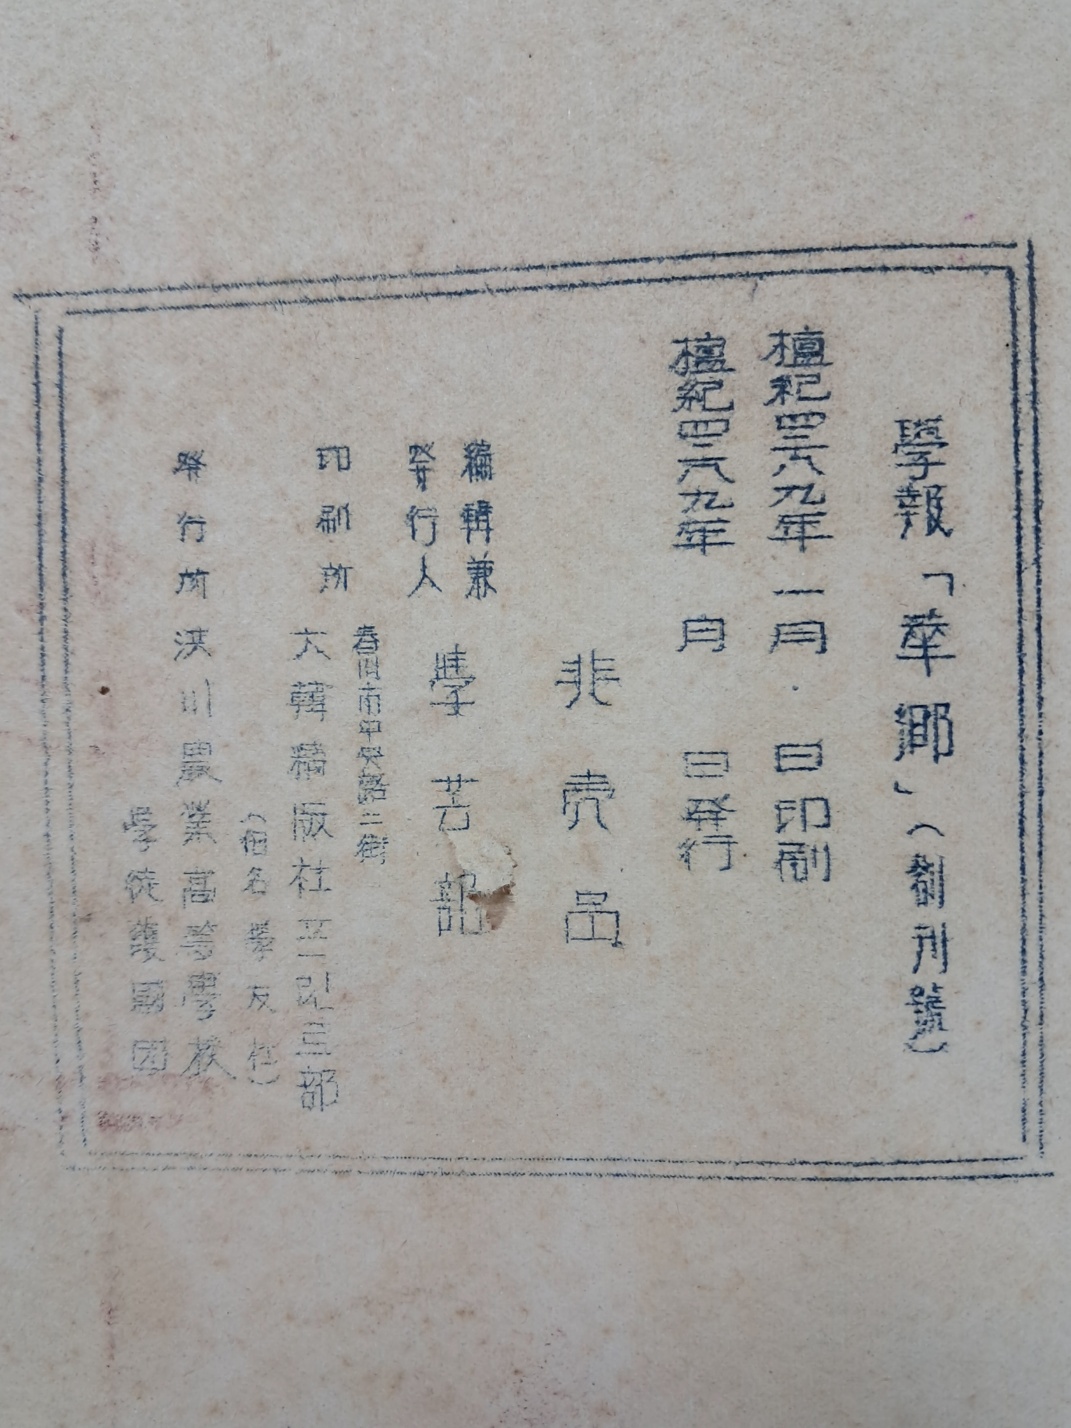 學報「華鄉」(創刊號)
檀紀四二八九年 一月 日印刷
檀紀四二八九年 月 日発行
非賣品
編輯兼
発行人
學芸部
春川市中央路二街
印刷所
大韓 版社프린트部
(별名 學友社)
発行所
洪川農業高等學校
學徒護國団